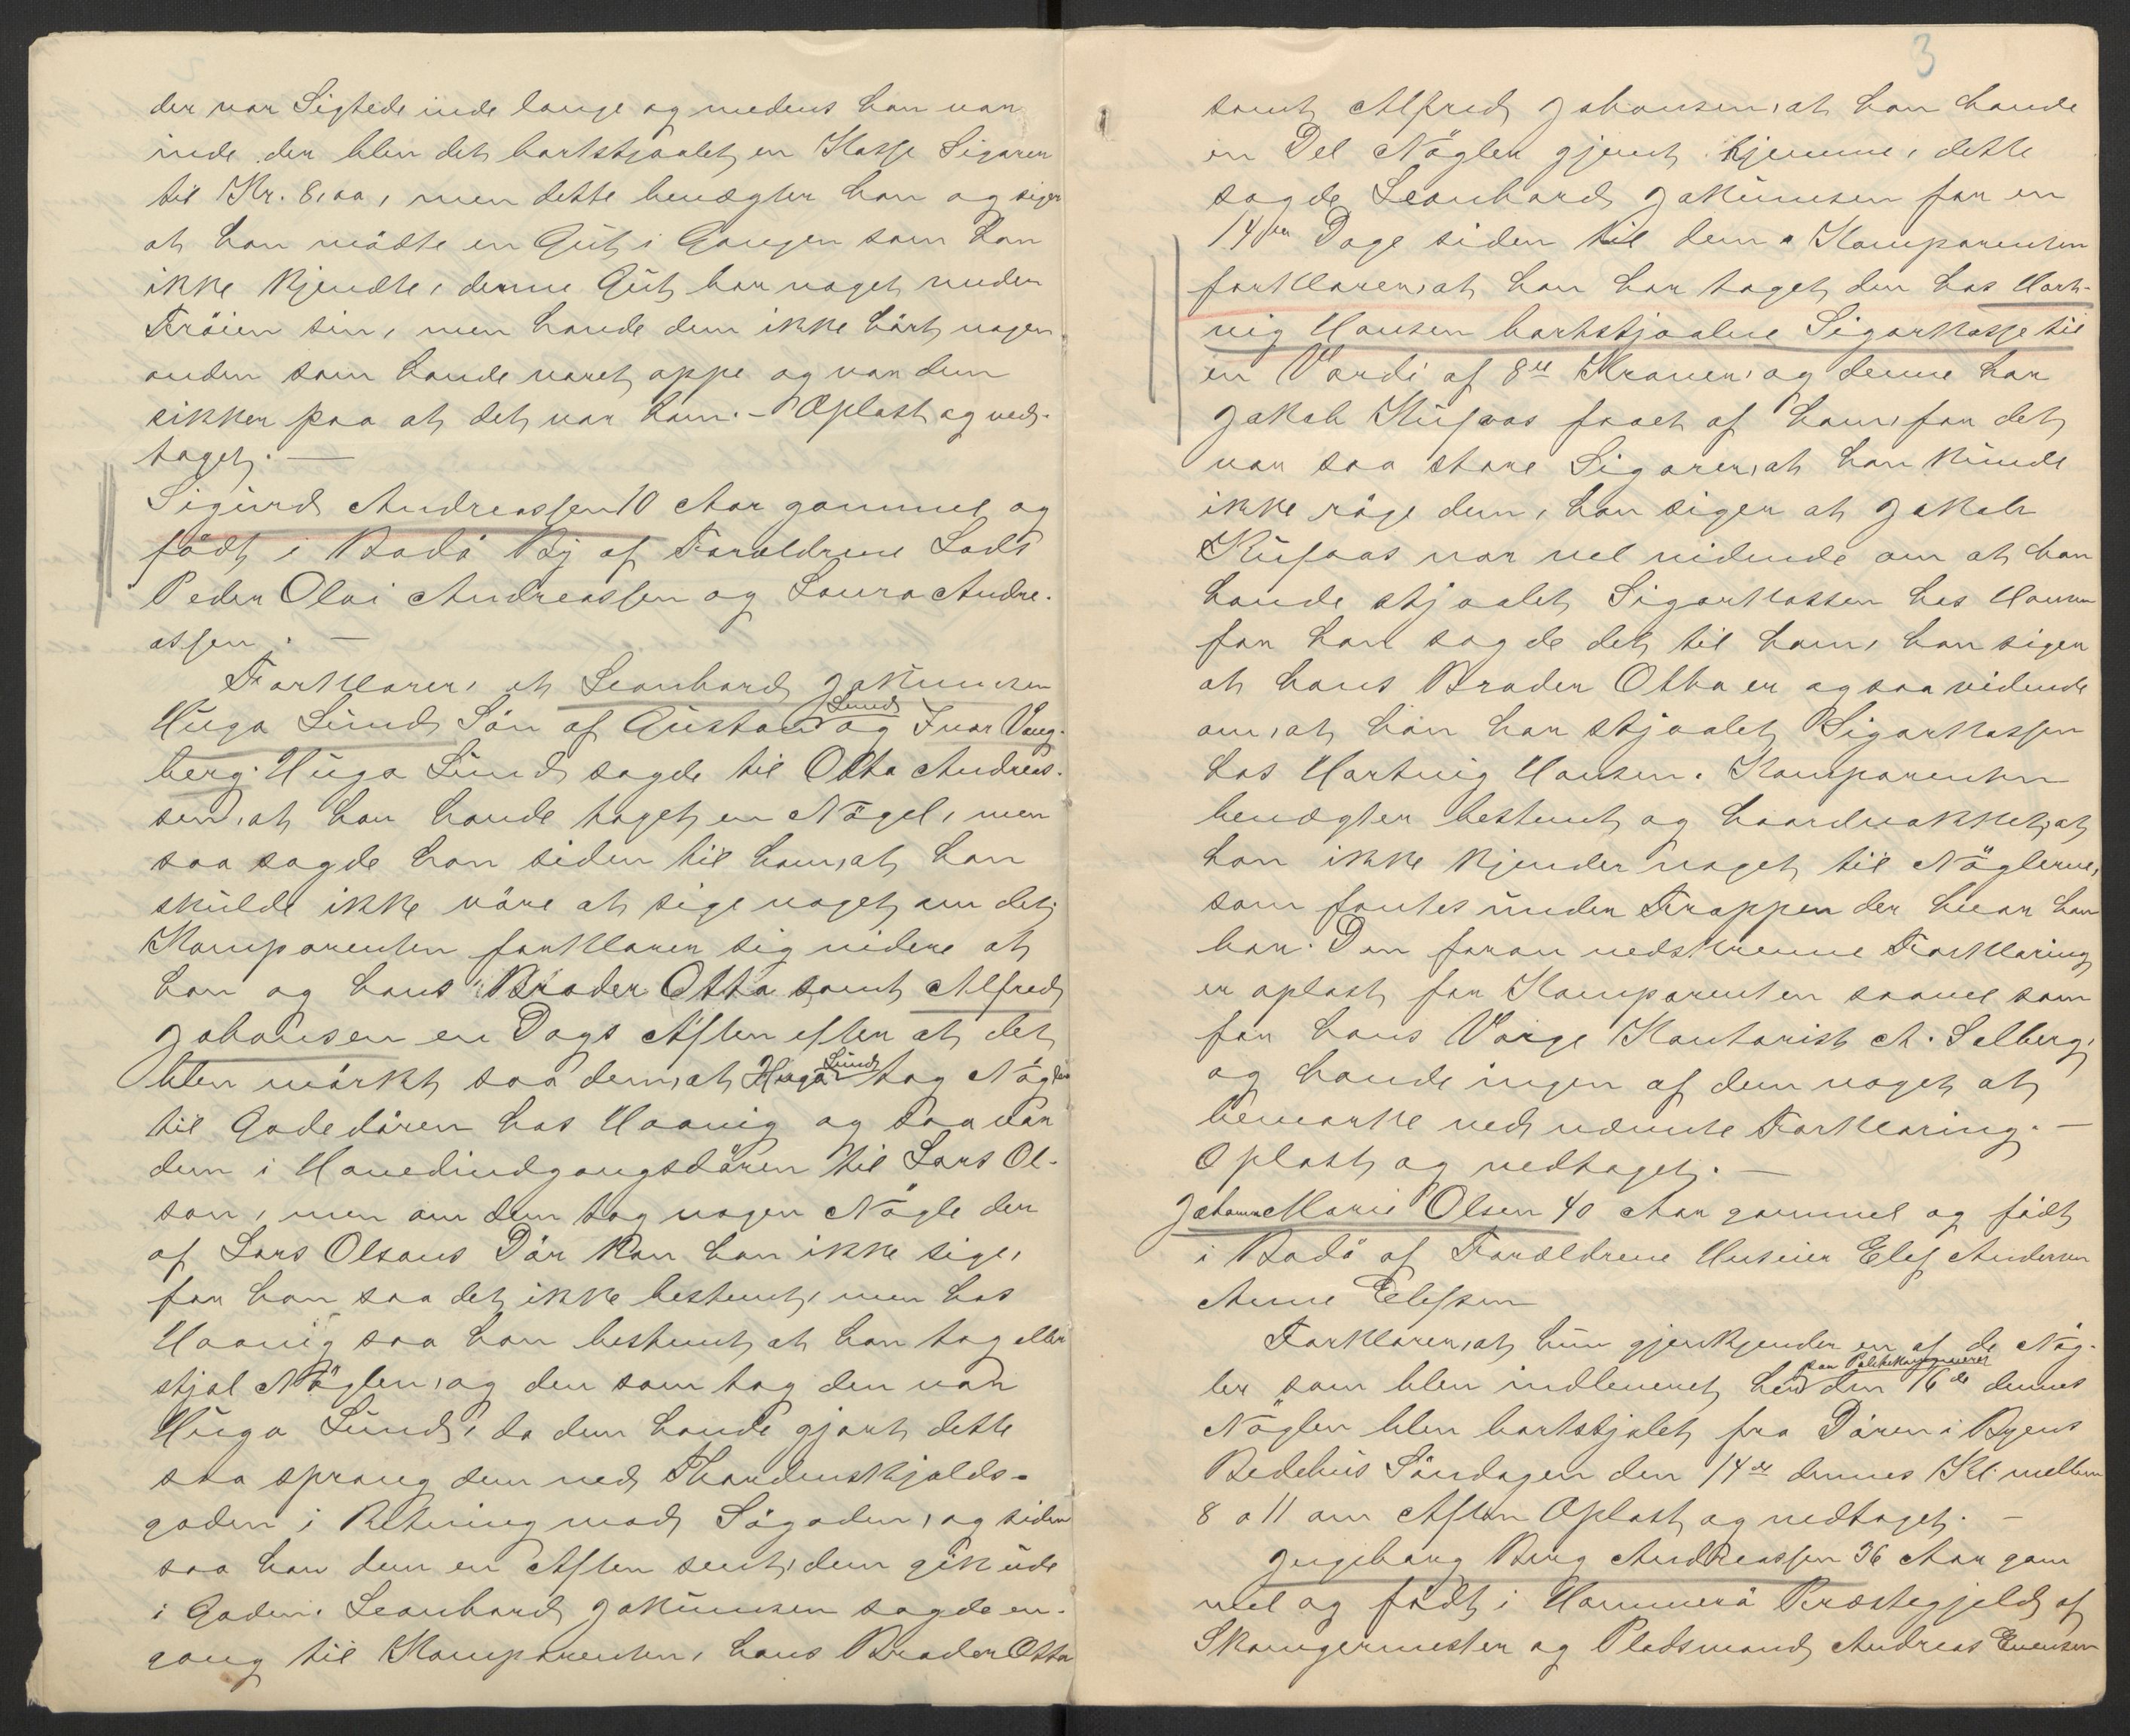 der var Sigtede inde længe og medens han var
inde der blev det bortstjaalet en Kasse Sigarer
til Kr. 8,00, men dette benægter han og siger
at han mödte en Gut i Gangen som han
ikke kjendte, denne Gut bar noget under
Tröien sin, men havde dem ikke hört nogen
anden som havde været oppe og var dem
sikker paa at det var ham. - Oplæst og ved-
taget. —
Sigurd Andreassen 10 Aar gammel og
födt i Bodö By af Forældrene Lods
Peder Olai Andreassen og Laura Andre-
assen. —
Forklarer, at Leonhard Jakumsen
Hugo Lund Sön af Gustav Lund og Ivar Vang-
berg. Hugo Lund sagde til Otto Andreas-
sen, at han havde taget en Nögel, men
saa sagde han siden til ham, at han
skulde ikke være at sige noget om det,
Komparenten forklarer sig videre at
han og hans Broder Otto samt Alfred
Johansen en Dags Aften efter at det
blev mörkt saa dem, at Hugo Lund tog Nöglen
til Gadedören hos Haavig og saa var
dem i Hovedindgangsdören til Lars Ol-
son, men om dem tog nogen Nögle der
af Lars Olsons Dör kan han ikke sige,
for han saa det ikke bestemt, men hos
Haavig saa han bestemt at han tog eller
stjal Nöglen, og den som tog den var
Hugo Lund, da dem havde gjort dette
saa sprang dem ned Thordenskjolds-
gaden i Retning mod Sögaden, og siden
saa han dem en Aften sent, dem gik ude
i Gaden. Leonhard Jakumsen sagde en-
gang til Komparenten, hans Broder Otto
3
samt Alfred Johansen, at han havde
en Del Nögler gjemt hjemme, dette
sagde Leonhard Jakumsen for en
14 Dage siden til dem. Komparenten
forklarer, at han har taget den hos Hart-
vig Hansen bortstjaalne Sigarkasse til
en Værdi af 8 Kroner, og denne har
Jakob Kufaas faaet af ham, for det
var saa store Sigarer, at han kunde
ikke röge dem, han siger at Jakob
Kufaas var vel vidende om at han
havde stjaalet Sigarkassen hos Hansen
for han sagde det til ham, han siger
at hans Broder Otto er ogsaa vidende
om, at han har stjaalet Sigarkassen
hos Hartvig Hansen. Komparenten
benægter bestemt og haardnakket, at
han ikke kjender noget til Nöglerne,
som fantes under Trappen der hvor han
bor. Den foran nedskrevne Forklaring
er oplæst for Komparenten saavel som
for hans Værge Kontorist A. Selberg,
og havde ingen af dem noget at
bemærke ved nævnte Forklaring. —
Oplæst og vedtaget. —
Johanna Marie Olsen 40 Aar gammel og födt
i Bodö af Forældrene Huseier Elef Andersen
Anne Elefsen
Forklarer, at hun gjenkjender en af de Nög-
ler som blev indleveret her paa Politikammeret den 16de dennes
Nöglen blev bortstjalet fra Dören i Byens
Bedehus Söndagen den 14de dennes Kl. mellem
8 a 11 om Aften Oplæst og vedtaget. —
Ingeborg Berg Andreassen 36 Aar gam
mel og födt i Hammerö Præstegjeld af
Skomagermester og Pladsmand Andreas Evensen